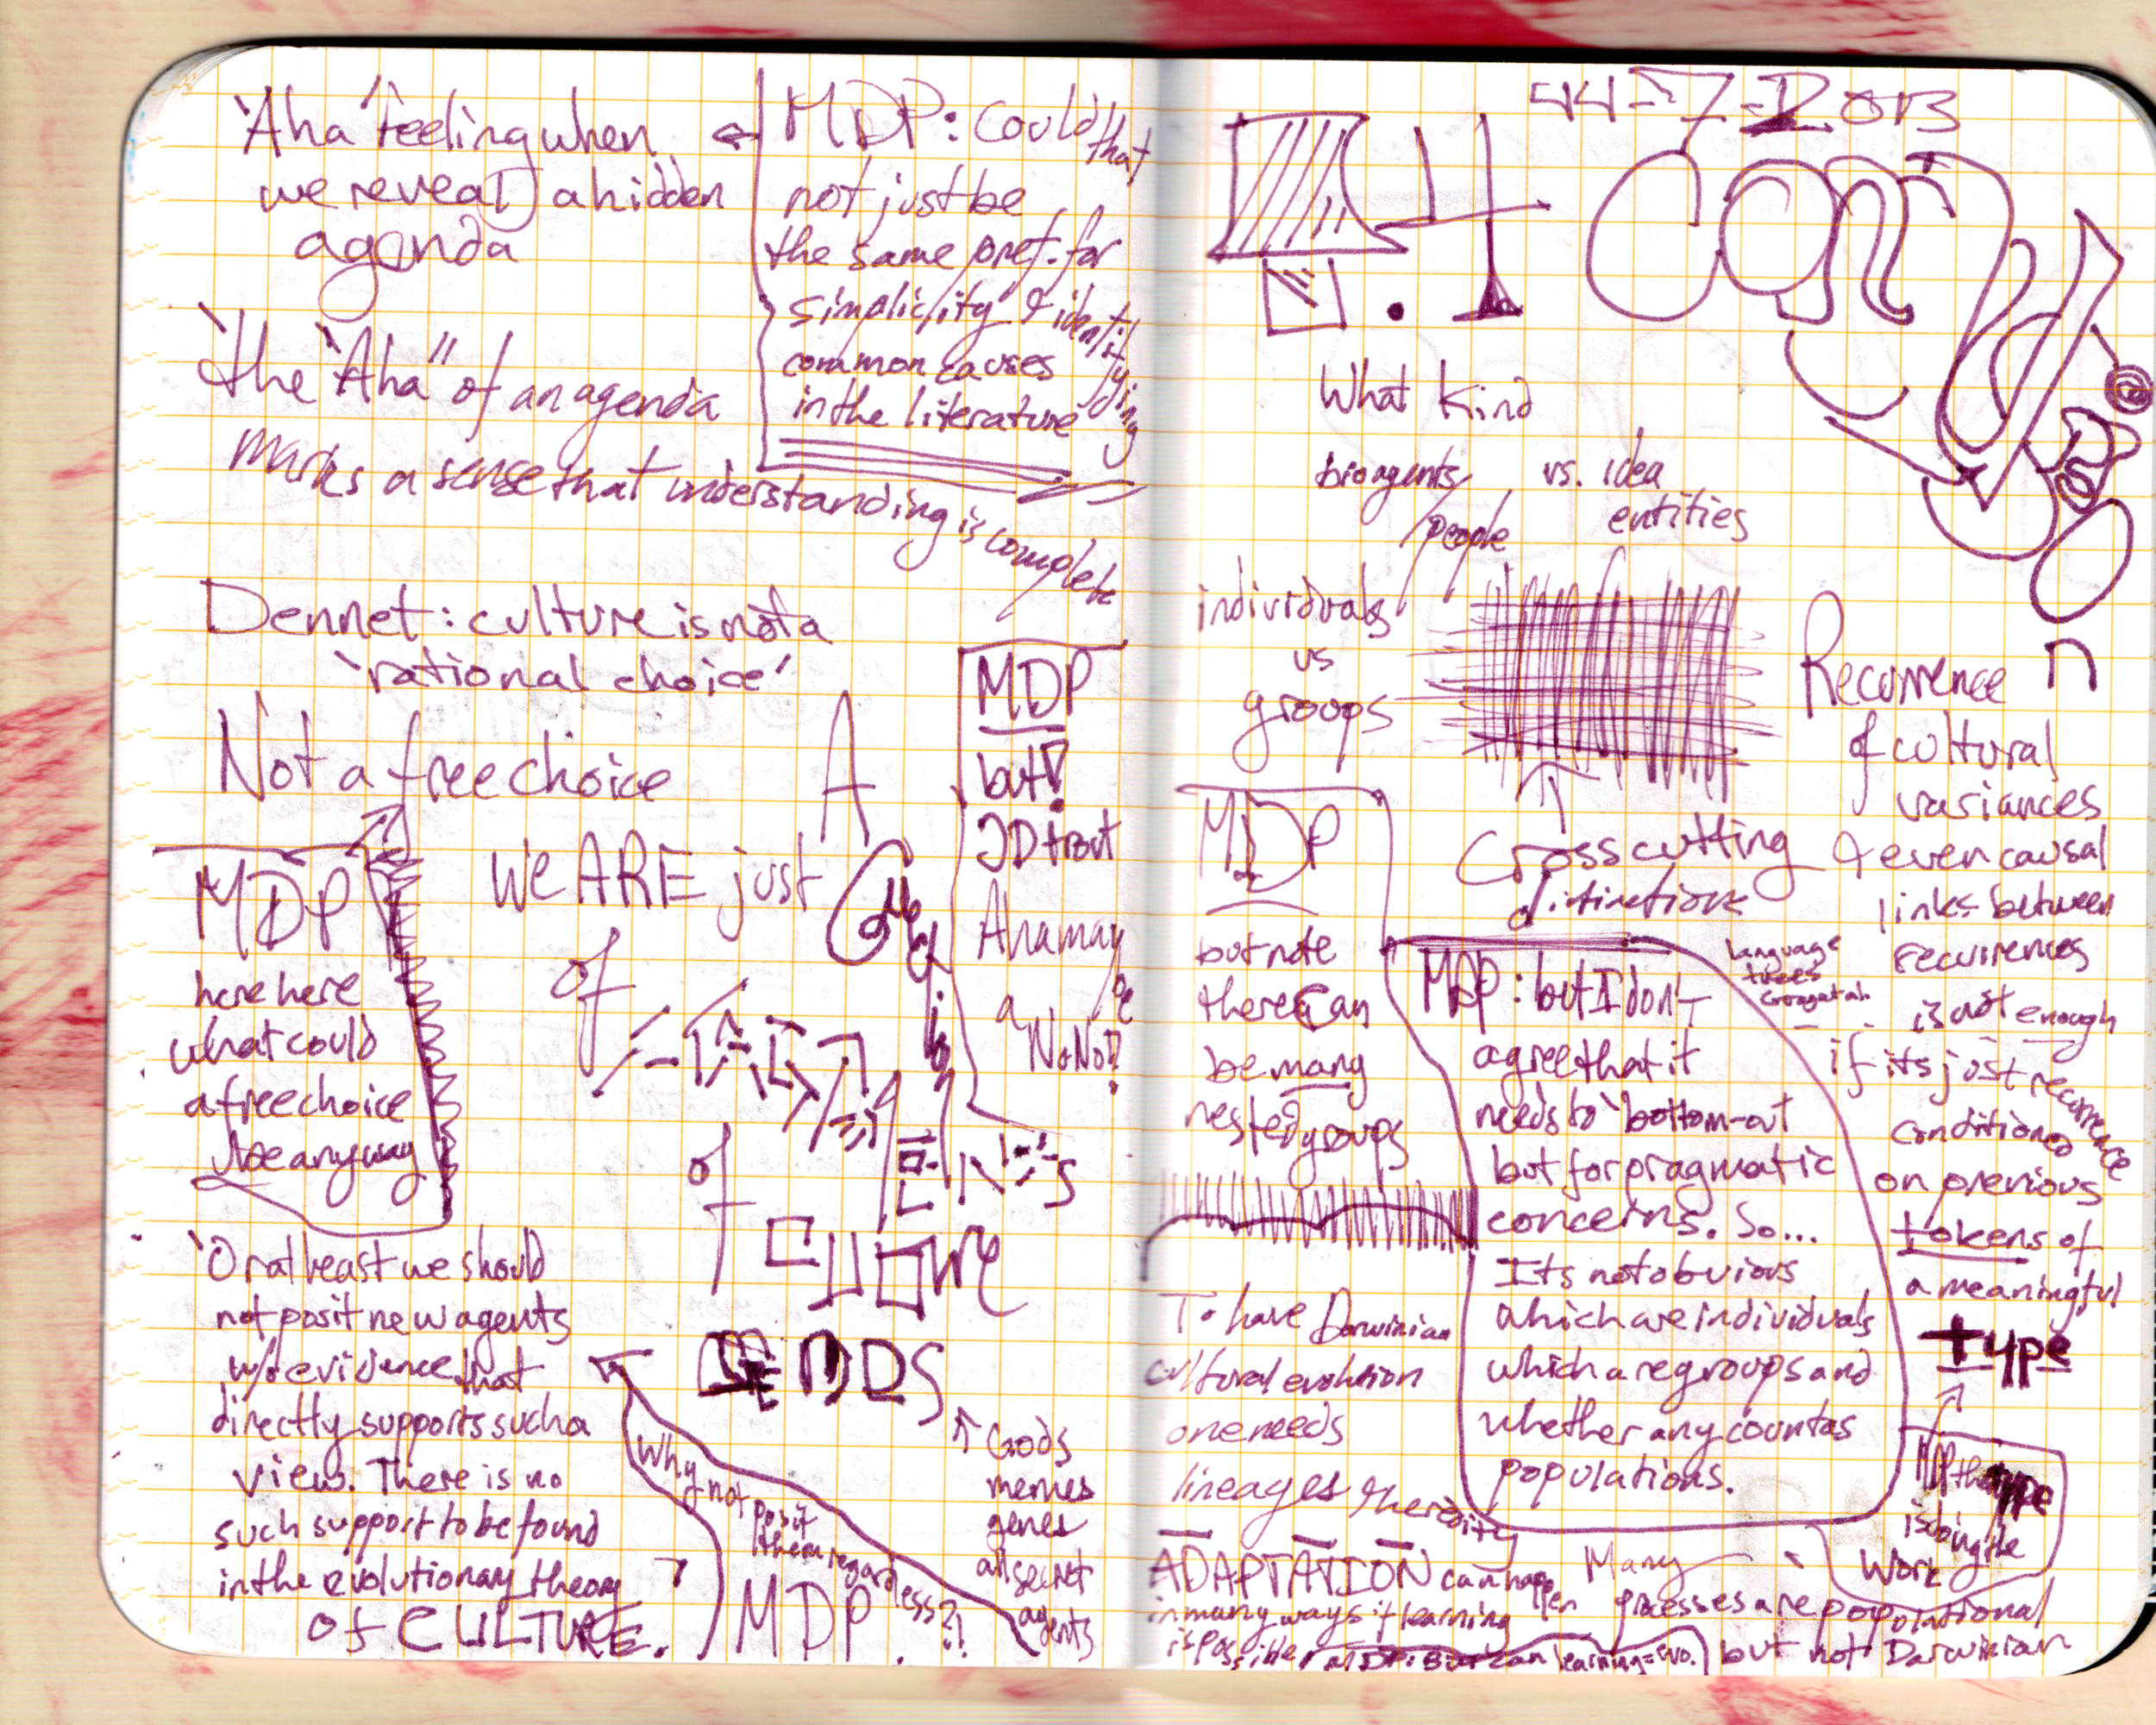 'Aha' feeling when
we reveal a hidden
agenda
MDP: Could that
not just be
the same pref. for
simplicity & identifying
common causes
in the literature
'the 'Aha'' of an agenda
marks a sense that understanding is complete
Dennet: culture is not a
'rational choice'
Not a free choice
MDP
here here
what could
a free choice
be anyway
A
We ARE just
of
of
MDP
but!
JD trout
Aha may
be
a
NoNo??
'Or at least we should
not posit new agents
w/o evidence that
directly supports such a
view. There is no
such support to be found
in the evolutionary theory
of CULTURE.
Why not posit
them regardless?!
MDP
↑ Gods
memes
genes
all secret
agents
What kind
bio agents
/people
vs. idea
entities
individuals
vs
groups
Cross cutting
distinctions
MDP
but note
there can
be many
nested groups
MDP: but I don't
agree that it
needs to 'bottom-out
but for pragmatic
concerns. So...
Its not obvious
which are individuals
which are groups and
whether any count as
populations.
Recurrence
of cultural
variances
& even causal
links between
recurrences
is not enough
if its just recurrence
conditioned
on previous
tokens of
a meaningful
type
language
trees
MDP the type
is doing the
work
To have Darwinian
cultural evolution
one needs
lineages & heredity
ADAPTATION can happen
in many ways if learning
is possible
MDP: But can learning = evo.
Many
processes are populational
but not Darwinian